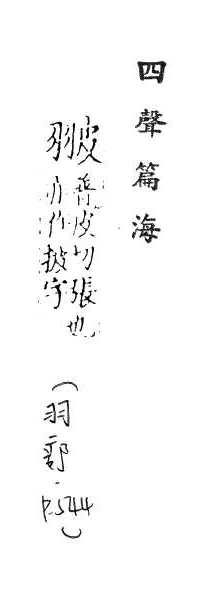 四聲篇海
翍
普皮切張也
亦作披字
(羽部.P.544)